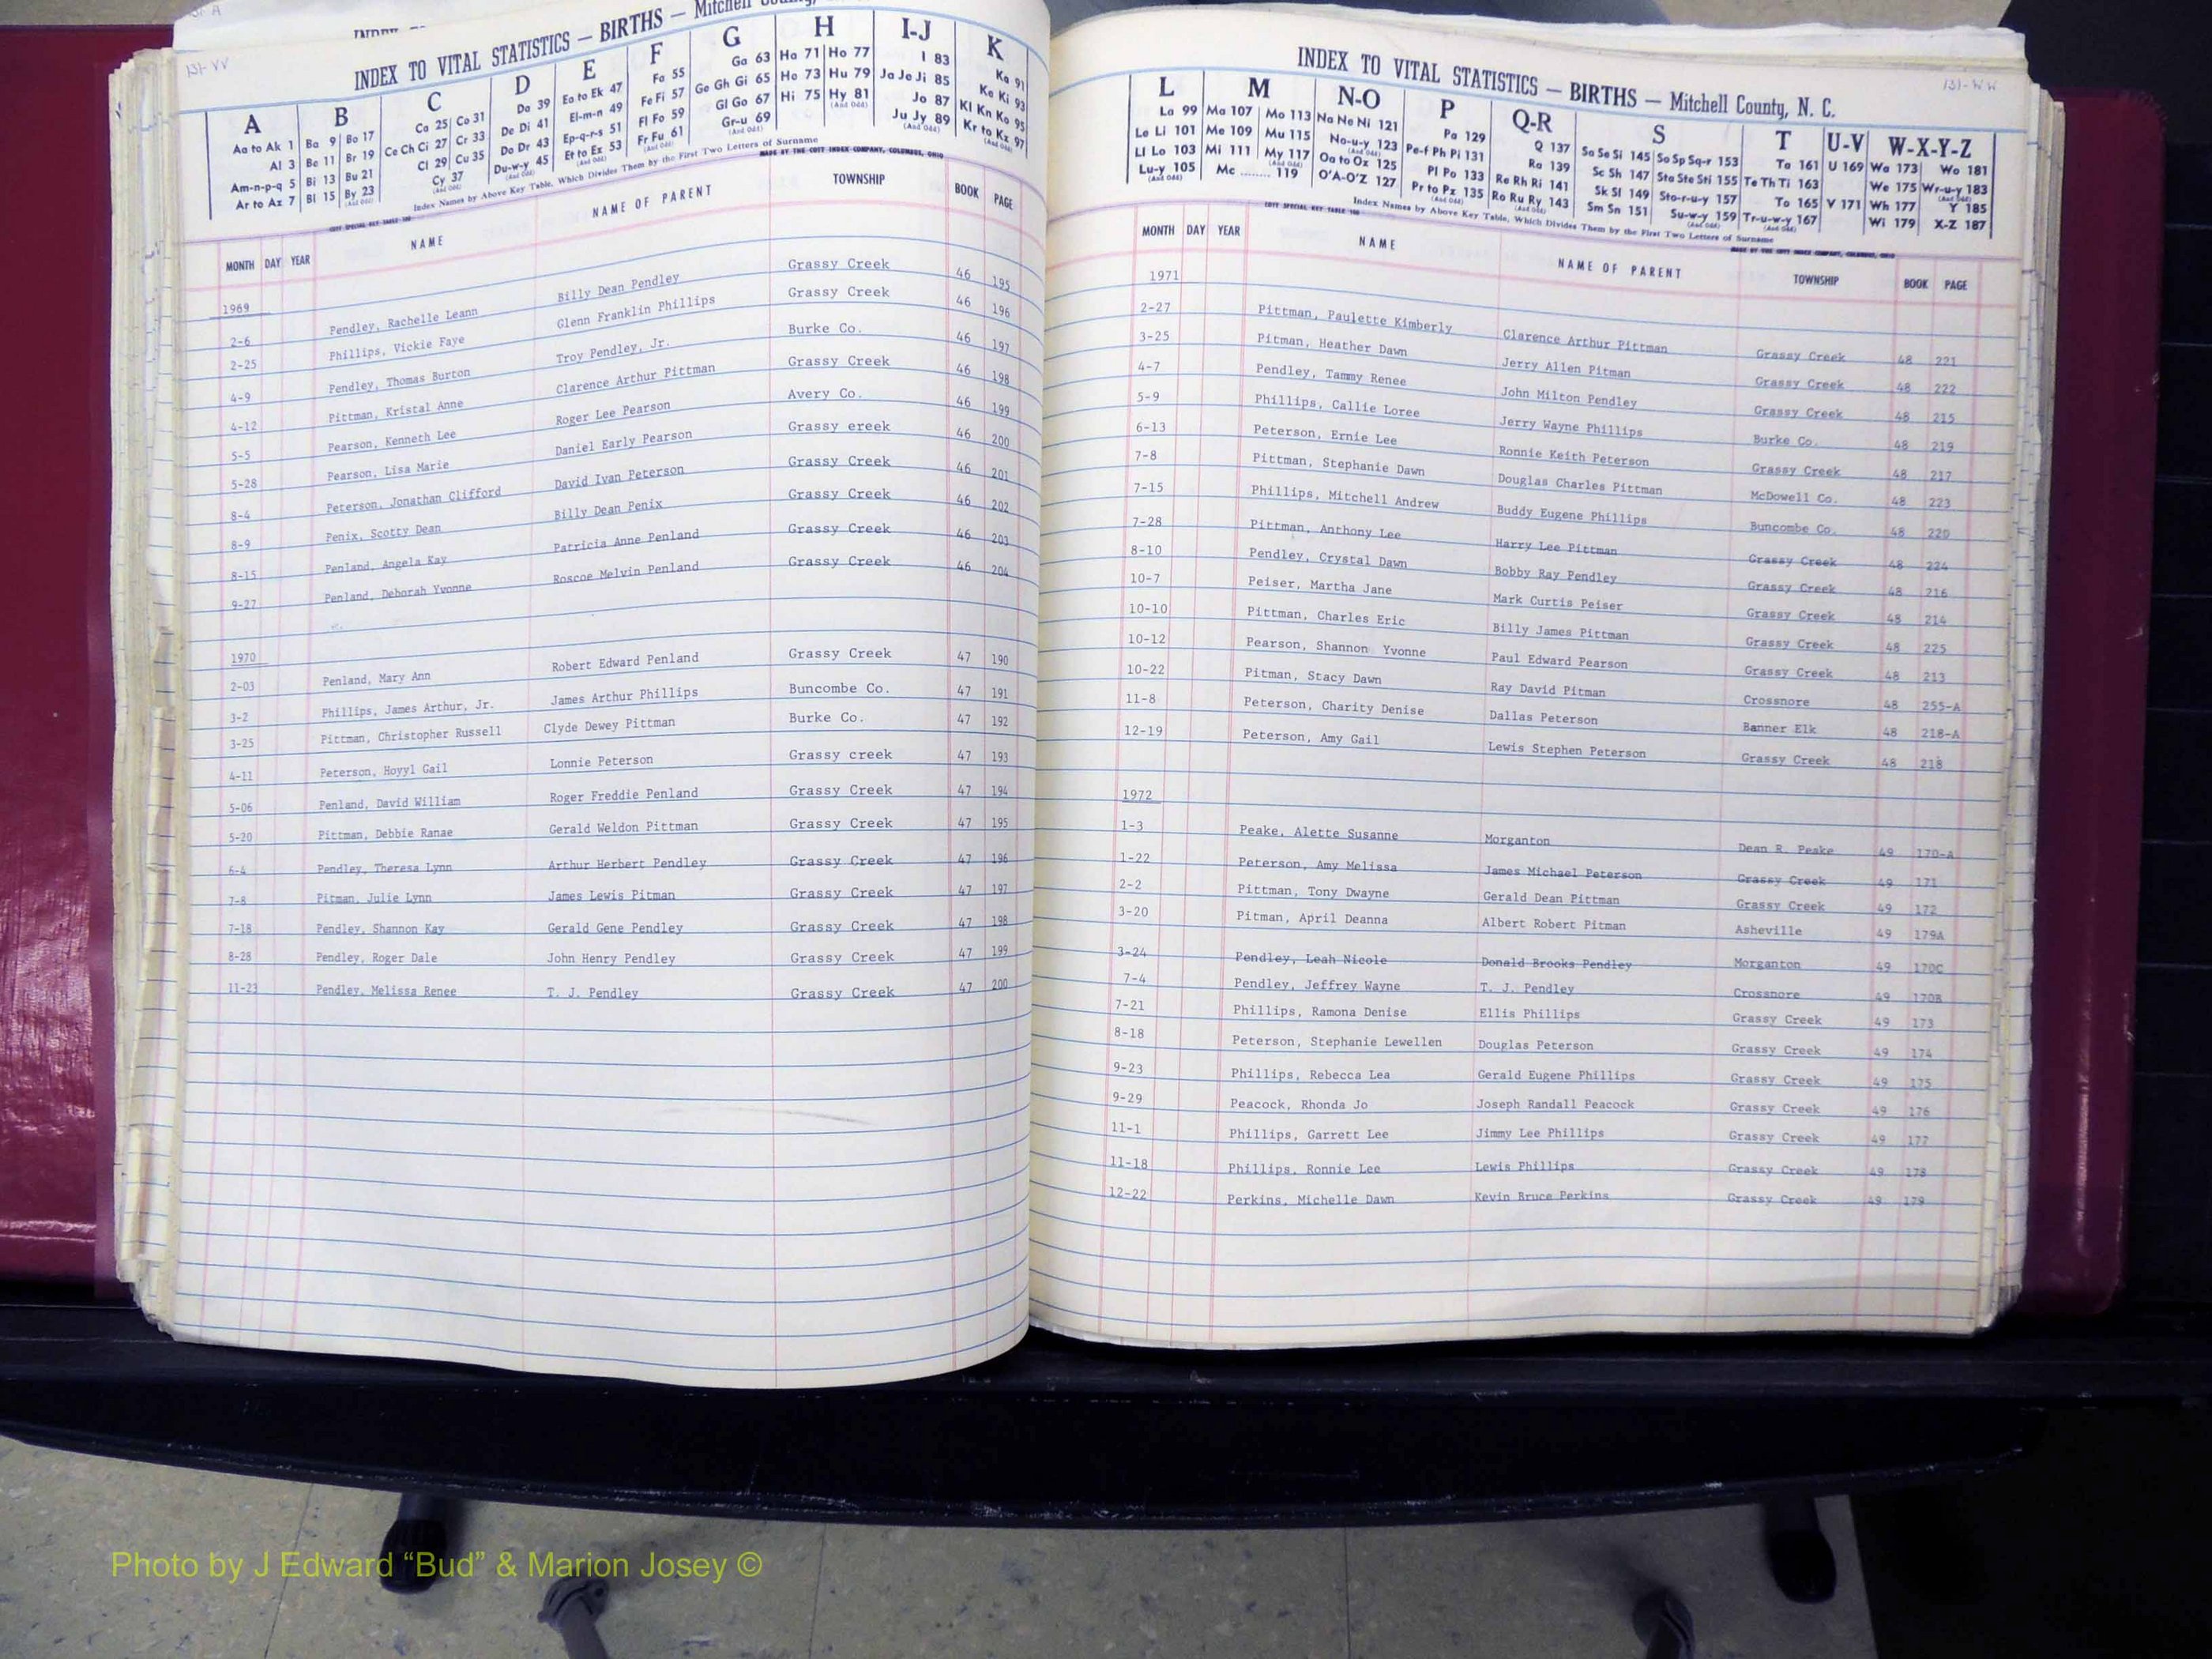 131-VV
INDEX TO VITAL STATISTICS — BIRTHS — Mitchell
A B C D E F G H I-J K
Aa to Ak 1 Ba 9 Bo 17 Ca 25 Co 31 Da 39 Ea to Ek 47 Fa 55 Ga 63 Ha 71 Ho 77 I 83 Ka 91
Al 3 Be 11 Br 19 Ce Ch Ci 27 Cr 33 De Di 41 El-m-n 49 Fe Fi 57 Ge Gh Gi 65 He 73 Hu 79 Ja Je Ji 85 Ke Ki 93
Am-n-p-q 5 Bi 13 Bu 21 Cl 29 Cu 35 Do Dr 43 Ep-q-r-s 51 Fl Fo 59 Gl Go 67 Hi 75 Hy 81 Jo 87 Kl Kn Ko 95
Ar to Az 7 Bl 15 By 23 Cy 37 Du-w-y 45 Et to Ez 53 Fr Fu 61 Gr-u 69 Ju Jy 89 Kr to Kz 97
Index Names by Above Key Table, Which Divides Them by the First Two Letters of Surname
MADE BY THE COTT INDEX COMPANY, COLUMBUS, OHIO
MONTH DAY YEAR NAME NAME OF PARENT TOWNSHIP BOOK PAGE
1969
2-6 Pendley, Rachelle Leann Billy Dean Pendley Grassy Creek 46 195
2-25 Phillips, Vickie Faye Glenn Franklin Phillips Grassy Creek 46 196
4-9 Pendley, Thomas Burton Troy Pendley, Jr. Burke Co. 46 197
4-12 Pittman, Kristal Anne Clarence Arthur Pittman Grassy Creek 46 198
5-5 Pearson, Kenneth Lee Roger Lee Pearson Avery Co. 46 199
5-28 Pearson, Lisa Marie Daniel Early Pearson Grassy ereek 46 200
8-4 Peterson, Jonathan Clifford David Ivan Peterson Grassy Creek 46 201
8-9 Penix, Scotty Dean Billy Dean Penix Grassy Creek 46 202
8-15 Penland, Angela Kay Patricia Anne Penland Grassy Creek 46 203
9-27 Penland, Deborah Yvonne Roscoe Melvin Penland Grassy Creek 46 204
1970
2-03 Penland, Mary Ann Robert Edward Penland Grassy Creek 47 190
3-2 Phillips, James Arthur, Jr. James Arthur Phillips Buncombe Co. 47 191
3-25 Pittman, Christopher Russell Clyde Dewey Pittman Burke Co. 47 192
4-11 Peterson, Hoyyl Gail Lonnie Peterson Grassy creek 47 193
5-06 Penland, David William Roger Freddie Penland Grassy Creek 47 194
5-20 Pittman, Debbie Ranae Gerald Weldon Pittman Grassy Creek 47 195
6-4 Pendley, Theresa Lynn Arthur Herbert Pendley Grassy Creek 47 196
7-8 Pitman, Julie Lynn James Lewis Pitman Grassy Creek 47 197
7-18 Pendley, Shannon Kay Gerald Gene Pendley Grassy Creek 47 198
8-28 Pendley, Roger Dale John Henry Pendley Grassy Creek 47 199
11-23 Pendley, Melissa Renee T. J. Pendley Grassy Creek 47 200
131-WW
INDEX TO VITAL STATISTICS — BIRTHS — Mitchell County, N. C.
L M N-O P Q-R S T U-V W-X-Y-Z
La 99 Ma 107 Mo 113 Na Ne Ni 121 Pa 129 Q 137 Sa Se Si 145 So Sp Sq-r 153 Ta 161 U 169 Wa 173 Wo 181
Le Li 101 Me 109 Mu 115 No-u-y 123 Pe-f Ph Pi 131 Ra 139 Sc Sh 147 Sta Ste Sti 155 Te Th Ti 163 We 175 Wr-u-y 183
Ll Lo 103 Mi 111 My 117 Oa to Oz 125 Pl Po 133 Re Rh Ri 141 Sk Sl 149 Sto-r-u-y 157 To 165 V 171 Wh 177 Y 185
Lu-y 105 Mc ........ 119 O'A-O'Z 127 Pr to Pz 135 Ro Ru Ry 143 Sm Sn 151 Su-w-y 159 Tr-u-w-y 167 Wi 179 X-Z 187
Index Names by Above Key Table, Which Divides Them by the First Two Letters of Surname
MONTH DAY YEAR NAME NAME OF PARENT TOWNSHIP BOOK PAGE
1971
2-27 Pittman, Paulette Kimberly Clarence Arthur Pittman Grassy Creek 48 221
3-25 Pitman, Heather Dawn Jerry Allen Pitman Grassy Creek 48 222
4-7 Pendley, Tammy Renee John Milton Pendley Grassy Creek 48 215
5-9 Phillips, Callie Loree Jerry Wayne Phillips Burke Co. 48 219
6-13 Peterson, Ernie Lee Ronnie Keith Peterson Grassy Creek 48 217
7-8 Pittman, Stephanie Dawn Douglas Charles Pittman McDowell Co. 48 223
7-15 Phillips, Mitchell Andrew Buddy Eugene Phillips Buncombe Co. 48 220
7-28 Pittman, Anthony Lee Harry Lee Pittman Grassy Creek 48 224
8-10 Pendley, Crystal Dawn Bobby Ray Pendley Grassy Creek 48 216
10-7 Peiser, Martha Jane Mark Curtis Peiser Grassy Creek 48 214
10-10 Pittman, Charles Eric Billy James Pittman Grassy Creek 48 225
10-12 Pearson, Shannon Yvonne Paul Edward Pearson Grassy Creek 48 213
10-22 Pitman, Stacy Dawn Ray David Pitman Crossnore 48 255-A
11-8 Peterson, Charity Denise Dallas Peterson Banner Elk 48 218-A
12-19 Peterson, Amy Gail Lewis Stephen Peterson Grassy Creek 48 218
1972
1-3 Peake, Alette Susanne Morganton Dean R. Peake 49 170-A
1-22 Peterson, Amy Melissa James Michael Peterson Grassy Creek 49 171
2-2 Pittman, Tony Dwayne Gerald Dean Pittman Grassy Creek 49 172
3-20 Pitman, April Deanna Albert Robert Pitman Asheville 49 179A
3-24 Pendley, Leah Nicole Donald Brooks Pendley Morganton 49 170C
7-4 Pendley, Jeffrey Wayne T. J. Pendley Crossnore 49 170B
7-21 Phillips, Ramona Denise Ellis Phillips Grassy Creek 49 173
8-18 Peterson, Stephanie Lewellen Douglas Peterson Grassy Creek 49 174
9-23 Phillips, Rebecca Lea Gerald Eugene Phillips Grassy Creek 49 175
9-29 Peacock, Rhonda Jo Joseph Randall Peacock Grassy Creek 49 176
11-1 Phillips, Garrett Lee Jimmy Lee Phillips Grassy Creek 49 177
11-18 Phillips, Ronnie Lee Lewis Phillips Grassy Creek 49 178
12-22 Perkins, Michelle Dawn Kevin Bruce Perkins Grassy Creek 49 179
Photo by J Edward “Bud” & Marion Josey ©